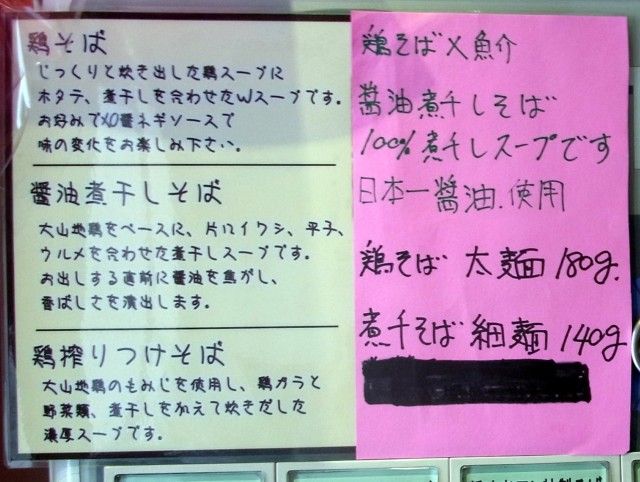 鶏そば
じっくりと炊き出した鶏スープに
ホタテ、煮干しを合わせたWスープです。
お好みでXO醤ネギソースで
味の変化をお楽しみ下さい。
醤油煮干しそば
大山地鶏をベースに、片口イワシ、平子、
ウルメを合わせた煮干しスープです。
お出しする直前に醤油を焦がし、
香ばしさを演出します。
鶏搾りつけそば
大山地鶏のもみじを使用し、鶏ガラと
野菜類、煮干しを加えて炊きだした
濃厚スープです。
鶏そば×魚介
醤油煮干しそば
100%煮干しスープです
日本一醤油.使用
鶏そば 太麺 180g.
煮干そば 細麺 140g